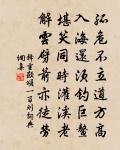 孤危不立道方高
入海還須釣巨鰲
堪笑同時灌溪老
解雲劈箭亦徒勞
釋重顯頌一百則詞典
網集